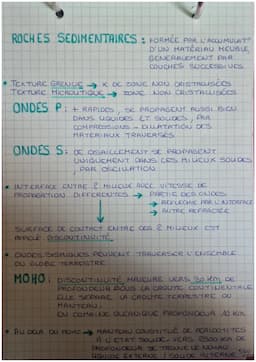 ROCHES SEDIMENTAIRES : FORMÉE PAR L'ACCUMULAT°
D'UN MATÉRIAU MEUBLE,
GENERALEMENT PAR
COUCHES SUCCESSIVES
• TEXTURE GRENUE → DE ZONE NON CRISTALISÉES
TEXTURE MICROLITIQUE → ZONE NON CRISTALLISÉES
ONDES P: + RAPIDES, SE PROPAGENT AUSSI BIEN
DANS LIQUIDES ET SOLIDES, PAR
COMPRESSIONS - DILATATIONS DES
MATERIAUX TRAVERSÉS
ONDES S: DE CISAILLEMENT SE PROPAGENT
UNIQUEMENT DANS LES MILIEUX SOLIDES
PAR OSCILLATION
• INTERFACE ENTRE 2 MILIEUX AVEC VITESSE DE
PROPAGATION DIFFERENTES → PARTIE DES ONDES
→ REFLECHIE PAR L'INTERFACE
→ AUTRE REFRACTÉE
SURFACE DE CONTACT ENTRE CES 2 MILIEUX EST
APPELÉ DISCONTINUITÉ
• ONDES SISMIQUES PEUVENT TRAVERSER L'ENSEMBLE
DU GLOBE TERRESTRE
MOHO: DISCONTINUITÉ MAJEURE VERS 30 KM DE
PROFONDEUR SOUS LA CROUTE CONTINENTALE
ELLE SEPARE LA CROUTE TERRESTRE DU
MANTEAU
EN DOMAINE OCEANIQUE PROFONDEUR 10 KM
• AU DELA DU MOHO → MANTEAU CONSTITUÉ DE PERIDOTITES
À L'ETAT SOLIDE VERS 2900 KM DE
PROFONDEUR SE TROUVE LE NOYAU
LIQUIDE EXTERNE / SOLIDE INTERNE